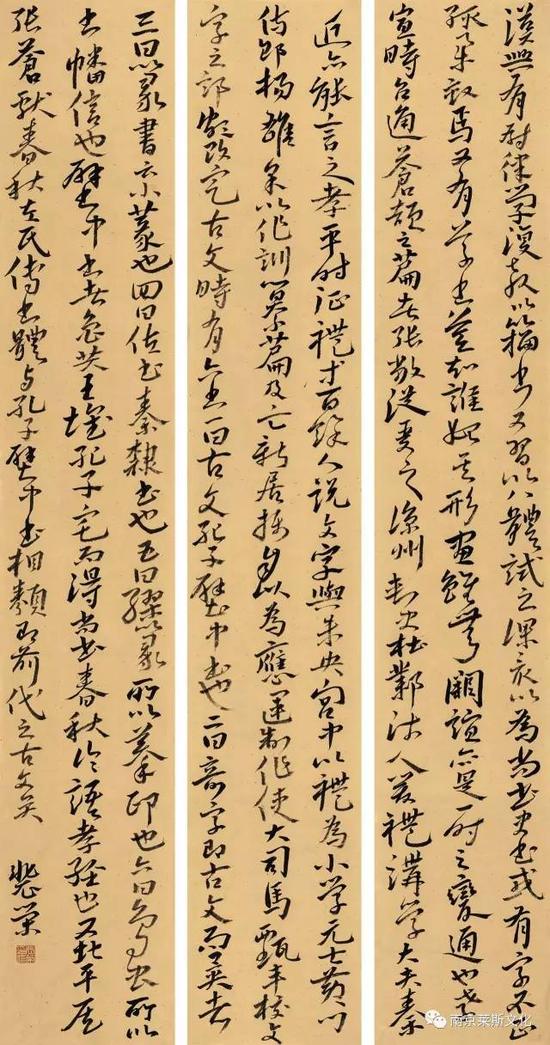 漢興有尉律學復教以籀書又習以八體試之課最以為尚書史書或有字不正
輒舉劾焉又有草書莫知誰始其形畫雖無闕誼亦是一時之變通也孝
宣時召通蒼頡之篇者張敞從受之涼州刺史杜鄴沛人爰禮講學大夫秦
近亦能言之孝平時征禮等百餘人說文字與未央宮中以禮為小學元士黃門
侍郎楊雄采以作訓纂篇及亡新居攝自以為應運制作使大司馬甄丰校文
字之部頗改定古文時有六書一曰古文孔子壁中書也二曰奇字即古文而異者
三曰篆書云小篆也四曰佐書秦隸書也五曰繆篆所以摹印也六曰鳥蟲所以
書幡信也壁中書者魯恭王壞孔子宅而得尚書春秋論語孝經也又北平侯
張蒼獻春秋左氏傳書體與孔子壁中書相類即前代之古文矣 榮
南京莱斯文化